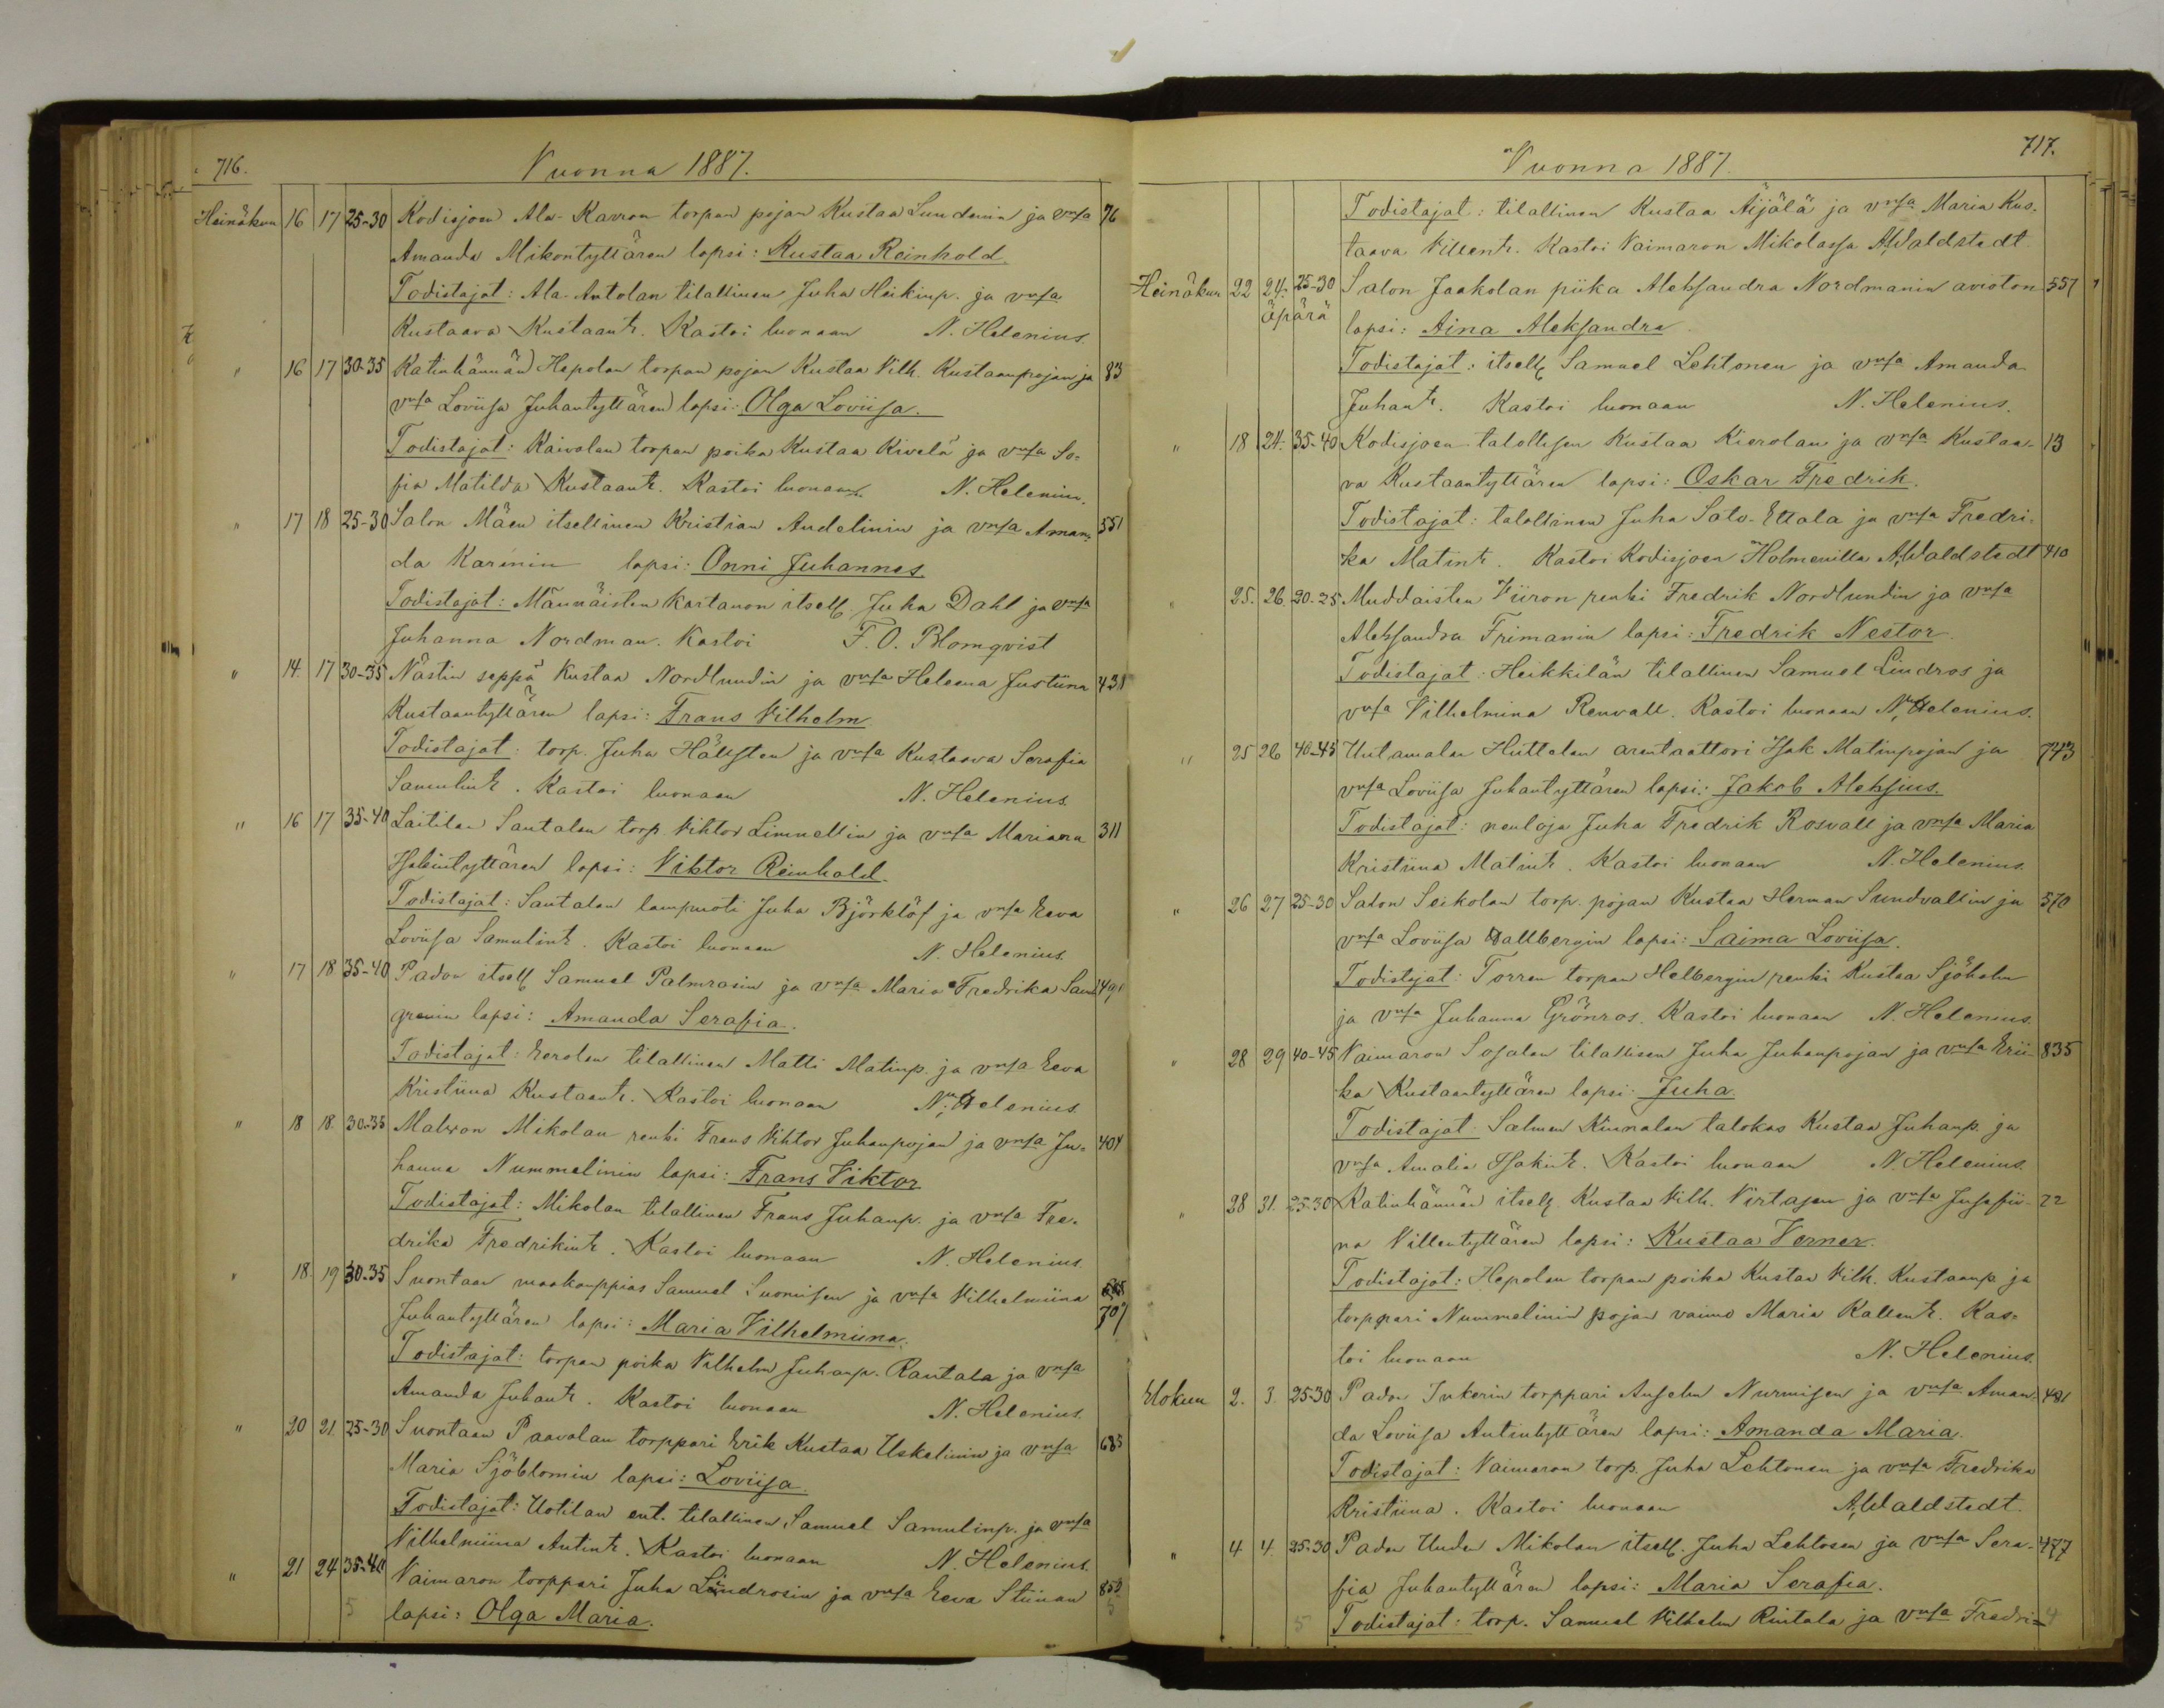 716.
Vuonna 1887.
Heinäkuu 16 17 25-30 Kodisjoen Ala-Kavron torpan pojan Kustaa Sundenin ja vmsa 76
Amanda Mikontyttären lapsi: Kustaa Reinhold
Todistajat: Ala-Antolan tilallinen Juha Heikinp. ja vmsa
Kustaava Kustaantr. Kastoi luonaan N. Helenius.
" 16 17 30-35 Katinhännän Hepolan torpan pojan Kustaa Vilh. Kustaanpojan ja 83
vmsa Loviisa Juhantyttären lapsi: Olga Loviisa.
Todistajat: Kaivolan torpan poika Kustaa Kivelä ja vmsa So-
fia Matilda Kustaantr. Kastoi luonaan N. Helenius.
" 17 18 25-30 Salon Mäen itsellinen Kristian Andelinin ja vmsa Aman- 551
da Karenin lapsi: Onni Juhannes.
Todistajat: Männäisten kartanon itsell. Juha Dahl ja vmsa
Juhanna Nordman. Kastoi F. O. Blomqvist
" 14. 17 30-35 Nästin seppä Kustaa Nordlundin ja vmsa Heleena Justiina 431
Kustaantyttären lapsi: Frans Vilhelm
Todistajat: torp. Juha Hällsten ja vmsa Kustaava Serafia
Samulintr. Kastoi luonaan N. Helenius.
" 16 17 35-40 Laitilan Santalan torp. Vihtor Limnellin ja vmsa Mariana 311
Isakintyttären lapsi: Viktor Reinhold.
Todistajat: Santalan lampuoti Juha Björklöf ja vmsa Eeva
Loviisa Samulintr. Kastoi luonaan N. Helenius.
" 17 18 35-40 Padon itsell. Samuel Palmrosin ja vmsa Maria Fredrika Sand 491
grenin lapsi: Amanda Serafia.
Todistajat: Eerolan tilallinen Matti Matinp. ja vmsa Eeva
Kristiina Kustaantr. Kastoi luonaan N. Helenius.
" 18 18. 30-35 Malvon Mikolan renki Frans Vihtor Juhanpojan ja vmsa Ju- 404
hanna Nummelinin lapsi: Frans Viktor
Todistajat: Mikolan tilallinen Frans Juhanp. ja vmsa Fre-
drika Fredrikintr. Kastoi luonaan N. Helenius.
" 18. 19 30-35 Suontaan maakauppias Samuel Suomisen ja vmsa Vilhelmiina
Juhantyttären lapsi: Maria Vilhelmiina. 707
Todistajat: torpan poika Vilhelm Juhanp. Rantala ja vmsa
Amanda Juhantr. Kastoi luonaan N. Helenius.
" 20 21. 25-30 Suontaan Paavolan torppari Erik Kustaa Uskelinin ja vmsa 685
Maria Sjöblomin lapsi: Loviisa.
Todistajat: Uotilan ent. tilallinen Samuel Samulinp. ja vmsa
Vilhelmiina Antintr. Kastoi luonaan N. Helenius.
" 21 24 35-40 Vaimaron torppari Juha Lindrosin ja vmsa Eeva Stiinan 853
lapsi: Olga Maria.
5 5
717.
Vuonna 1887.
Todistajat: tilallinen Kustaa Äijälä ja vmsa Maria Kus-
taava Villentr. Kastoi Vaimaron Mikolassa A. Waldstedt.
Heinäkuu 22 24. 25-30 Salon Jaakolan piika Aleksandra Nordmanin avioton 557
äpärä lapsi: Aina Aleksandra
Todistajat: itsell. Samuel Lehtonen ja vmsa Amanda
Juhantr. Kastoi luonaan N. Helenius.
" 18 24. 35-40 Kodisjoen talollisen Kustaa Kierolan ja vmsa Kustaa- 13
va Kustaantyttären lapsi: Oskar Fredrik.
Todistajat: talollinen Juha Salo-Ettala ja vmsa Fredri-
ka Matintr. Kastoi Kodisjoen Holmenilla A. Waldstedt 410
" 25. 26. 20-25 Muddaisten Viiron renki Fredrik Nordlundin ja vmsa
Aleksandra Frimanin lapsi: Fredrik Nestor.
Todistajat: Heikkilän tilallinen Samuel Lindros ja
vmsa Vilhelmina Renvall. Kastoi luonaan N. Helenius.
" 25 26 40-45 Untamalan Huttelan arentaattori Isak Matinpojan ja 743
vmsa Loviisa Juhantyttären lapsi: Jakob Aleksius.
Todistajat: neuloja Juha Fredrik Rosvall ja vmsa Maria
Kristiina Matintr. Kastoi luonaan N. Helenius.
" 26 27 25-30 Salon Seikolan torp. pojan Kustaa Herman Sundvallin ja 570
vmsa Loviisa Dallbergin lapsi: Saima Loviisa.
Todistajat: Torren torpan Helbergin renki Kustaa Sjöholm
ja vmsa Juhanna Grönros. Kastoi luonaan N. Helenius.
" 28 29 40-45 Vaimaron Sosalan tilallisen Juha Juhanpojan ja vmsa Erii- 835
ka Kustaantyttären lapsi: Juha.
Todistajat: Salmen Kinnalan talokas Kustaa Juhanp. ja
vmsa Amalia Isakintr. Kastoi luonaan N. Helenius.
" 28 31. 25-30 Katinhännän itsell. Kustaa Vilh. Virtasen ja vmsa Josefii- 72
na Villentyttären lapsi: Kustaa Verner.
Todistajat: Hepolan torpan poika Kustaa Vilh. Kustaanp. ja
torppari Nummelinin pojan vaimo Maria Kallentr. Kas-
toi luonaan N. Helenius.
Elokuu 2. 3. 25-30 Padon Inkerin torppari Anselm Nurmisen ja vmsa Aman- 481
da Loviisa Antintyttären lapsi: Amanda Maria.
Todistajat: Vaimaron torp. Juha Lehtonen ja vmsa Fredrika
Kristiina. Kastoi luonaan A. Waldstedt.
" 4 4. 25-30 Padon Uuden Mikolan itsell. Juha Lehtosen ja vmsa Sera- 477
fia Juhantyttären lapsi: Maria Serafia.
5 Todistajat: torp. Samuel Vilhelm Rintala ja vmsa Fredri- 4